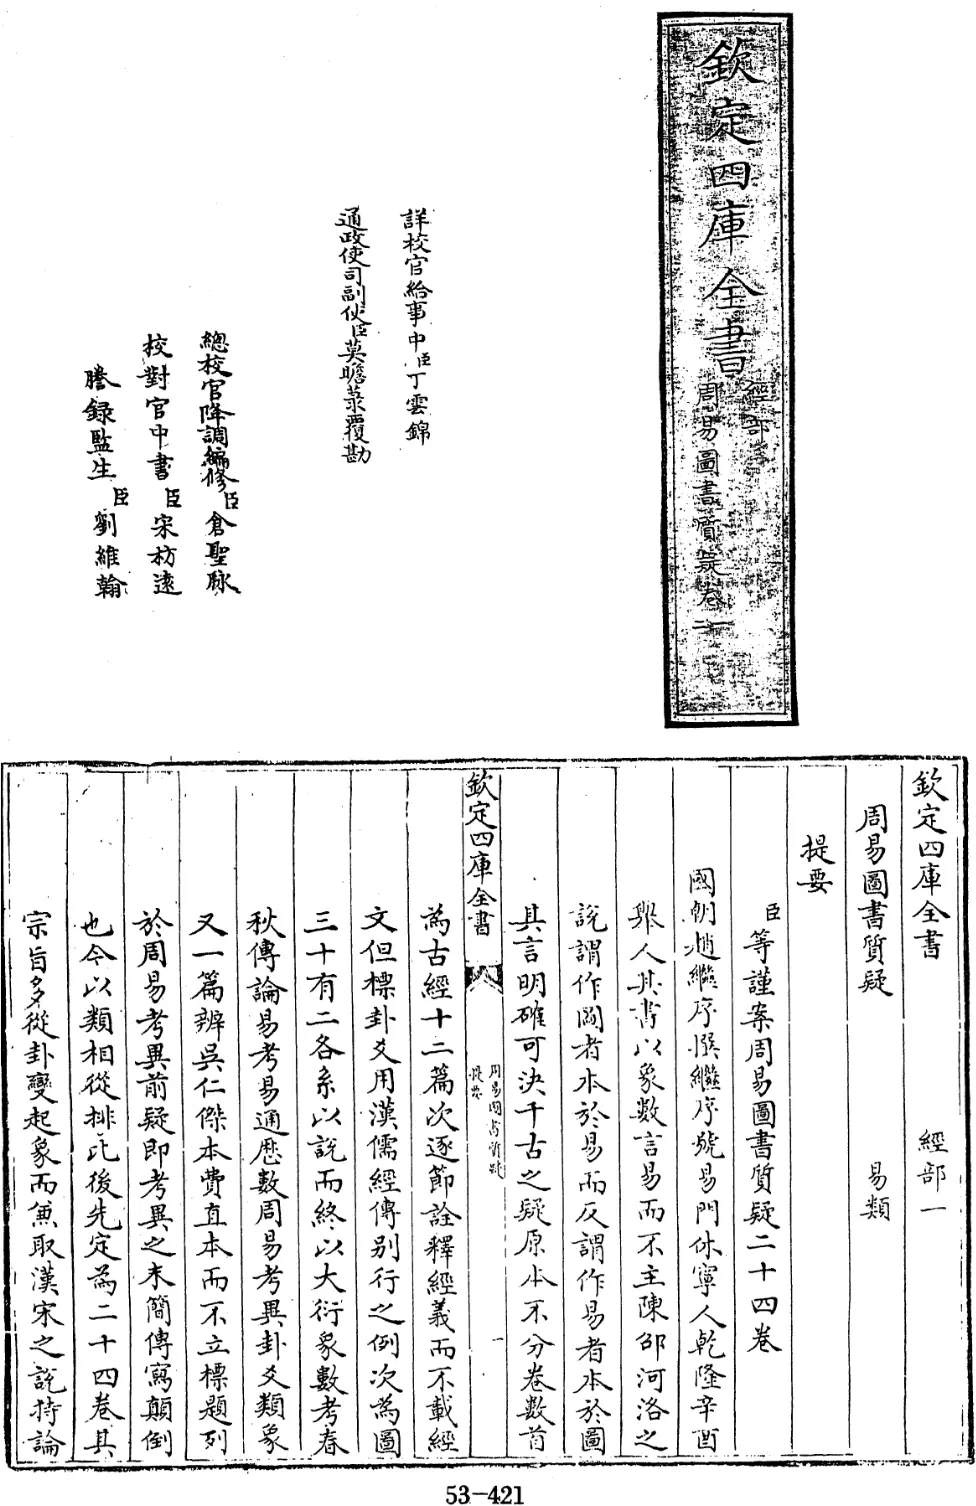 欽定四庫全書
經部
周易圖書質疑卷一
詳校官給事中臣丁雲錦
通政使司副使臣莫瞻菉覆勘
總校官降調編修臣倉聖脉
校對官中書臣宋枋遠
謄錄監生臣劉維翰
欽定四庫全書 經部一
周易圖書質疑 易類
提要
臣等謹案周易圖書質疑二十四卷
國朝趙繼序撰繼序號易門休寧人乾隆辛酉
舉人其書以象數言易而不主陳邵河洛之
說謂作圖者本於易而反謂作易者本於圖
其言明確可決千古之疑原本不分卷數首
欽定四庫全書
周易圖書質疑
提要
一
為古經十二篇次逐節詮釋經義而不載經
文但標卦爻用漢儒經傳別行之例次為圖
三十有二各系以說而終以大衍象數考春
秋傳論易考易通歷數周易考異卦爻類象
又一篇辨吳仁傑本費直本而不立標題列
於周易考異前疑即考異之末簡傳寫顛倒
也今以類相從排比後先定為二十四卷其
宗旨多從卦變起象而兼取漢宋之說持論
53-421